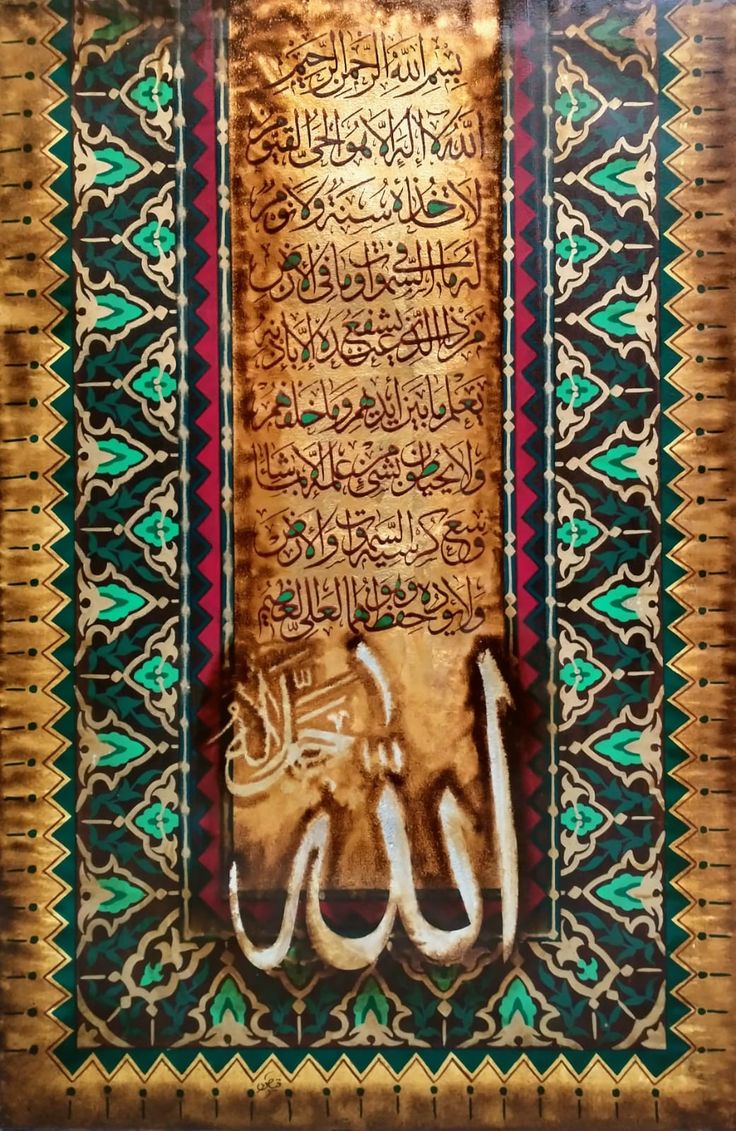 بِسْمِ اللهِ الرَّحْمٰنِ الرَّحِيْمِ
اَللهُ لَا اِلٰهَ اِلَّا هُوَ الْحَیُّ الْقَیُّومُ
لَا تَاْخُذُهٗ سِنَةٌ وَلَا نَوْمٌ
لَهٗ مَا فِی السَّمٰوٰتِ وَمَا فِی الْاَرْضِ
مَنْ ذَا الَّذِیْ یَشْفَعُ عِنْدَهٗ اِلَّا بِاِذْنِهٖ
یَعْلَمُ مَا بَیْنَ اَیْدِیْهِمْ وَمَا خَلْفَهُمْ
وَلَا یُحِیْطُوْنَ بِشَیْءٍ مِّنْ عِلْمِهٖ اِلَّا بِمَا شَاءَ
وَسِعَ كُرْسِیُّهُ السَّمٰوٰتِ وَالْاَرْضَ
وَلَا یَئُوْدُهٗ حِفْظُهُمَا وَهُوَ الْعَلِیُّ الْعَظِیْمُ
الله
جَلَّ جَلَالُهُ